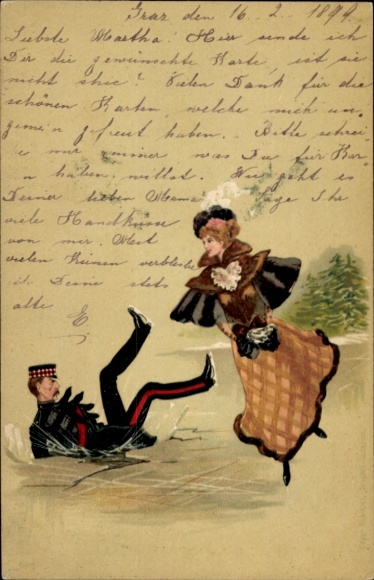 Graz den 16. 2. 1899.
Liebste Martha! Hier sende ich
Dir die gewünschte Karte, ist sie
nicht chic? Vielen Dank für die
schönen Karten, welche mich un-
gemein gefreut haben. Bitte schrei-
e mir immer was Du für Kar-
n haben willst. Wie geht es
Deiner lieben Mama? Sage Ihr
viele Handküsse
von mir. Mit
vielen Küssen verbleibe
ich Deine stets
alte E